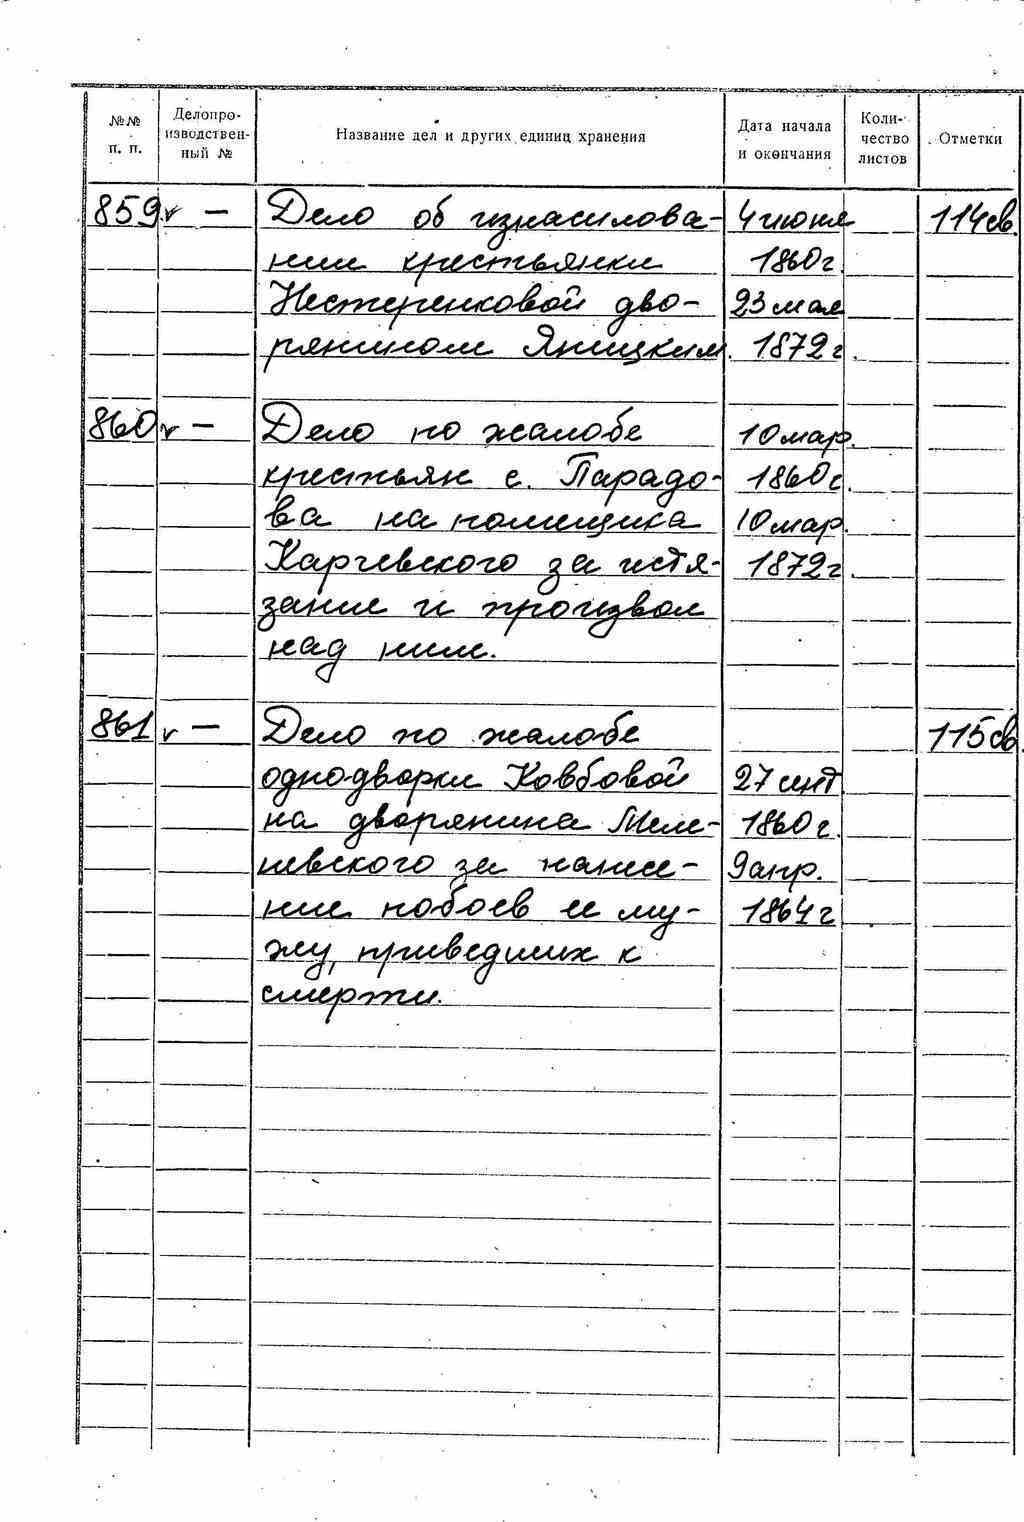 №№ п. п. Делопроизводственный № Название дел и других единиц хранения Дата начала и окончания Количество листов Отметки
859 v — Дело об изнасилова- 4 июня 114 св.
нии крестьянки 1860 г.
Нестеренковой дво- 23 мая
рянином Яницким. 1872 г.
860 v — Дело по жалобе 10 мар.
крестьян с. Парадо- 1860 г.
ва на помещика 10 мар.
Карчевского за истя- 1872 г.
зание и произвол
над ним.
861 v — Дело по жалобе 115 св.
однодворки Ковбовой 27 сент.
на дворянина Меле- 1860 г.
невского за нанесе- 9 апр.
ние побоев ее му- 1864 г
жу, приведших к
смерти.